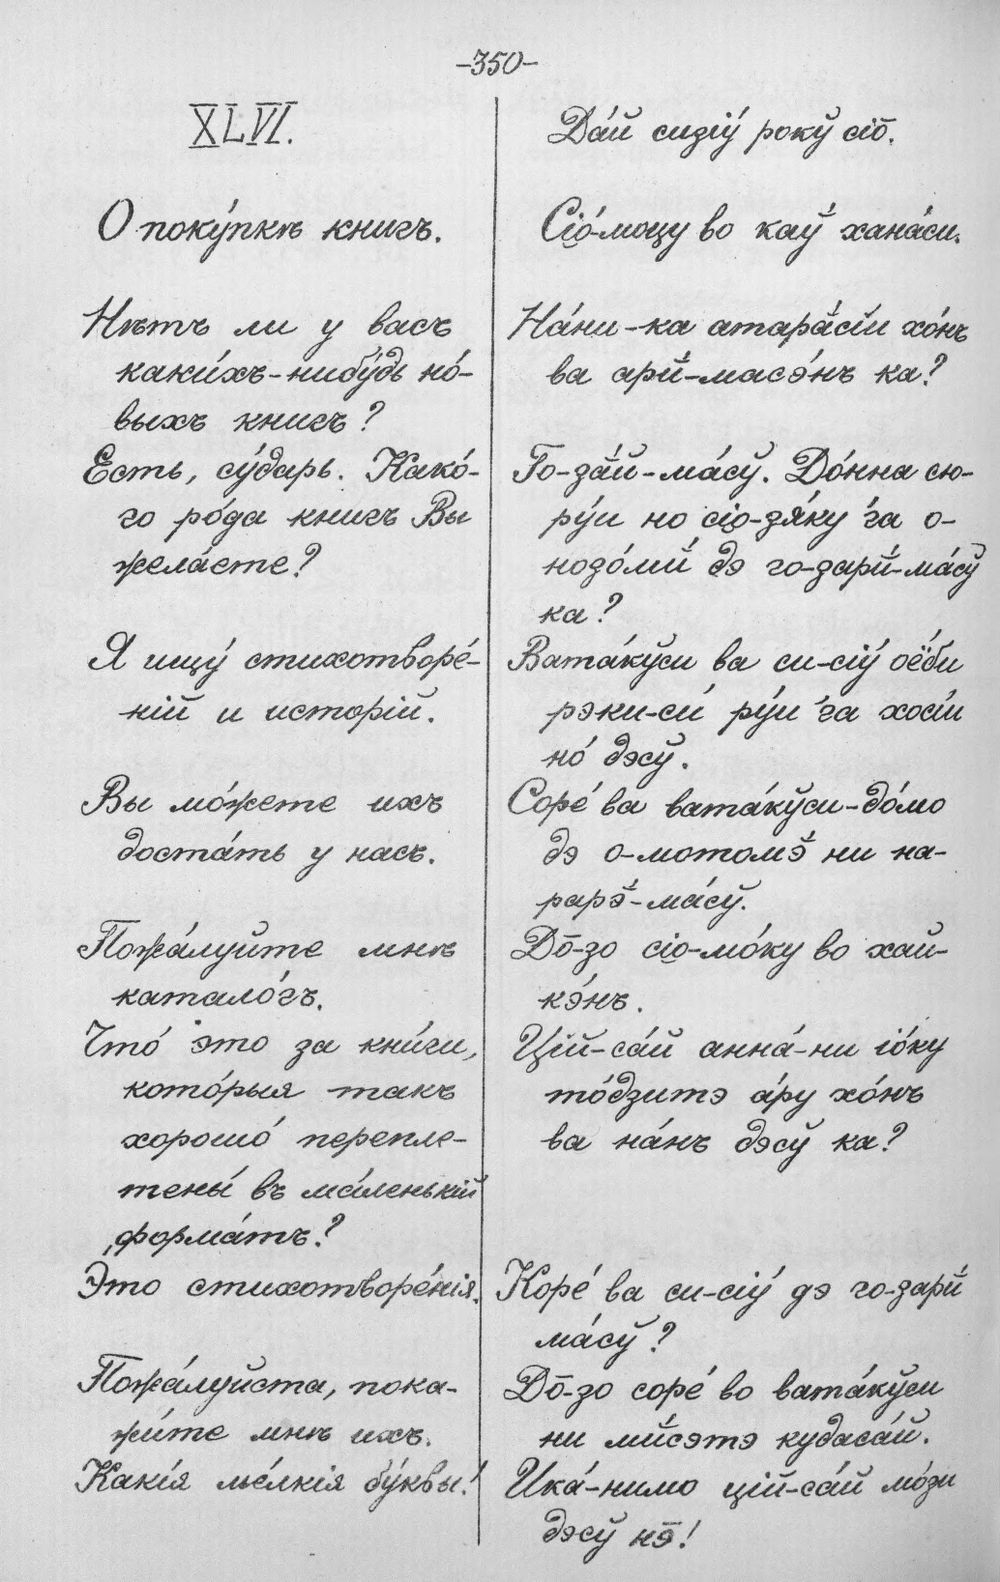 -350-
XLVI.
О поку́пкѣ книгъ.
Нѣтъ ли у васъ
каки́хъ-нибу́дь но́-
выхъ книгъ?
Есть, су́дарь. Како́-
го ро́да книгъ Вы
жела́ете?
Я ищу́ стихотворе́-
ній и исторій.
Вы мо́жете ихъ
доста́ть у насъ.
Пожа́луйте мнѣ
катало́гъ.
Что́ это за кни́ги,
кото́рыя такъ
хорошо́ перепле-
тены́ въ ма́ленькій
форма́тъ?
Это стихотворе́нія.
Пожа́луйста, пока-
жи́те мнѣ ихъ.
Какі́я ме́лкія бу́квы!
Да́й сизіу́ рокў сіо̄.
Сіо́-моцу во каў хана́си.
На́ни-ка атара́сіи хо́нъ
ва арй-масэ́нъ ка?
Го-за́й-ма́сў. До́нна сю-
ру́и но сіо-зя́ку ’га о-
нозо́мӣ дэ го-зарй-ма́сў
ка?
Вата́кўси ва си-сіу́ оё́би
рэки-си́ ру́и ’га хосі́и
но́ дэсў.
Соре́ ва вата́кўси-до́мо
дэ о-мотомэ̆ ни на-
рарэ̆-ма́сў.
До̄-зо сіо-мо́ку во хай-
кэ́нъ.
Цій-са́й анна́-ни іо́ку
то́дзитэ а́ру хо́нъ
ва на́нъ дэсў ка?
Коре́ ва си-сіу́ дэ го-зарй
ма́сў?
До̄-зо соре́ во вата́кўси
ни мӣсэтэ кудаса́й.
Ика́-нимо цій-са́й мо́зи
дэсў нэ̄!